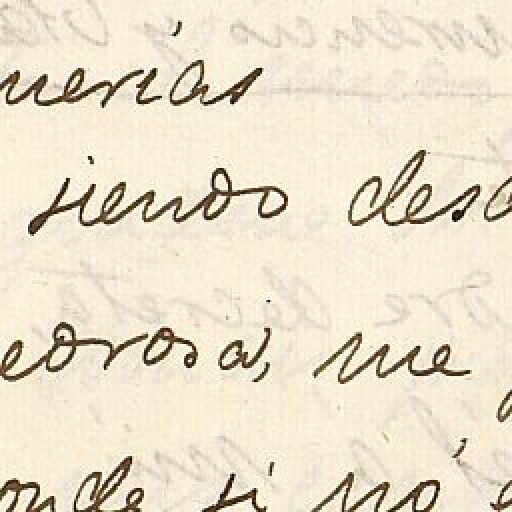 uerías
siendo desd
edrosa, me
onde si nó